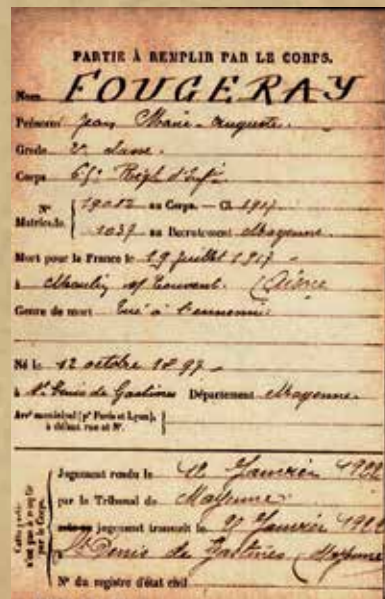 PARTIE À REMPLIR PAR LE CORPS.
Nom FOUGERAY
Prénoms Jean Marie-Auguste.
Grade 2e classe.
Corps 65e Régt d'Infie
No Matricule 19012 au Corps. — Cl. 1917
1037 au Recrutement Mayenne
Mort pour la France le 19 juillet 1917
à Moulin s/ Touvent (Aisne
Genre de mort Tué à l'ennemi
Né le 12 octobre 1897
à St Denis de Gastines Département Mayenne
Arrt municipal (pr Paris et Lyon),
à défaut rue et No.
Cette partie
n'est pas à remplir
par le Corps.
Jugement rendu le 12 Janvier
par le Tribunal de Mayenne
jugement transcrit le Janvier
St Denis de Gastines (Mayenne
No du registre d'état civil